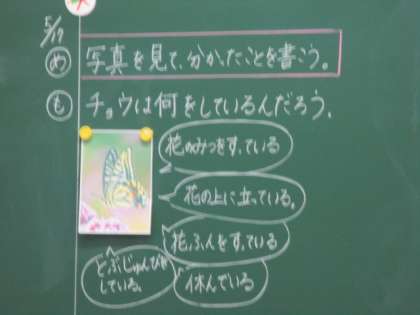 5/17
め 写真を見て、分かったことを書こう。
も チョウは何をしているんだろう。
花のみつをすっている
花の上に立っている。
花ふんをすっている
とぶじゅんびを
している。
休んでいる